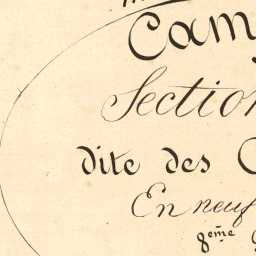 Cam
Section
dite des C
En neuf
8eme